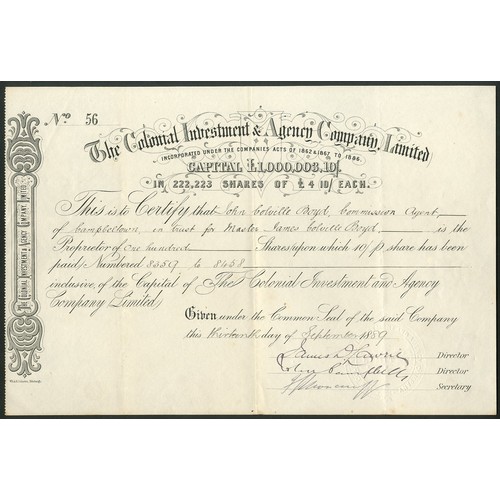 No 56
The Colonial Investment & Agency Company, Limited
INCORPORATED UNDER THE COMPANIES ACTS OF 1862 & 1867 TO 1886.
CAPITAL £1,000,003,10/
IN 222,223 SHARES OF £4 10/ EACH.
This is to Certify that John Colville Boyd, Commission Agent,
of Campbeltown, in trust for Master James Colville Boyd, is the
Proprietor of One hundred Shares upon which 10/ p share has been
paid, Numbered 8359 to 8458
inclusive, of the Capital of The Colonial Investment and Agency
Company (Limited)
Given under the Common Seal of the said Company
this thirteenth day of September 1889
Director
Director
Secretary
THE COLONIAL INVESTMENT & AGENCY COMPANY, LIMITED.